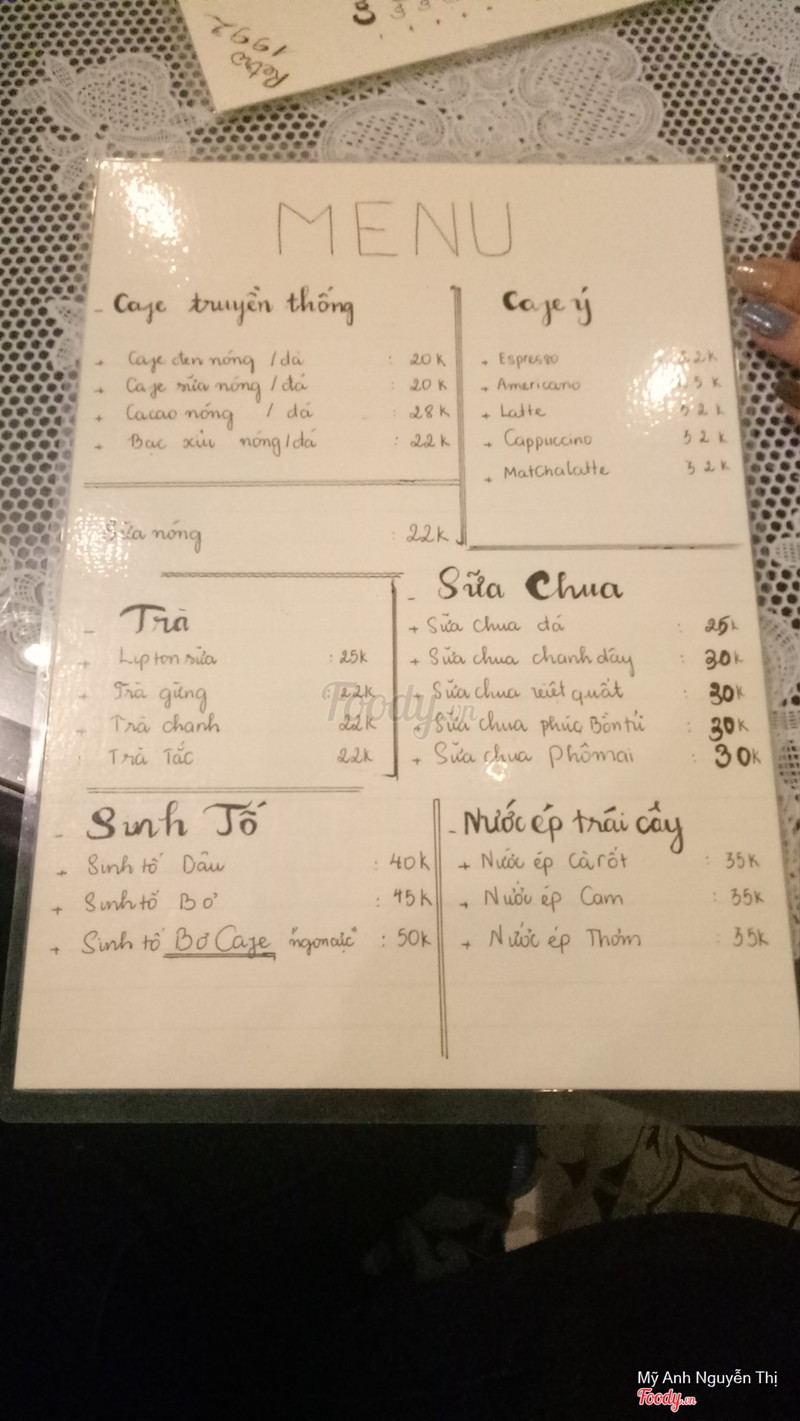 Retro
1992
MENU
- Cafe truyền thống
+ Cafe đen nóng / đá : 20K
+ Cafe sữa nóng / đá : 20K
+ Cacao nóng / đá : 28K
+ Bạc xỉu nóng / đá : 22K
Sữa nóng : 22K
Cafe ý
+ Espresso 32K
+ Americano 5K
+ Latte 32K
+ Cappuccino 32K
+ Matchalatte 32K
- Trà
+ Lipton sữa : 25K
+ Trà gừng : 22K
+ Trà chanh 22K
+ Trà Tắc 22K
- Sữa Chua
+ Sữa chua đá : 25K
+ Sữa chua chanh dây : 30K
+ Sữa chua việt quất : 30K
+ Sữa chua phúc Bồn tử : 30K
+ Sữa chua Phômai : 30K
- Sinh Tố
+ Sinh tố Dâu : 40K
+ Sinh tố Bơ : 45K
+ Sinh tố Bơ Cafe "ngon cực" : 50K
- Nước ép trái cây
+ Nước ép Cà rốt : 35K
+ Nước ép Cam : 35K
+ Nước ép Thơm : 35K
Foody.vn
Mỹ Anh Nguyễn Thị
Foody.vn